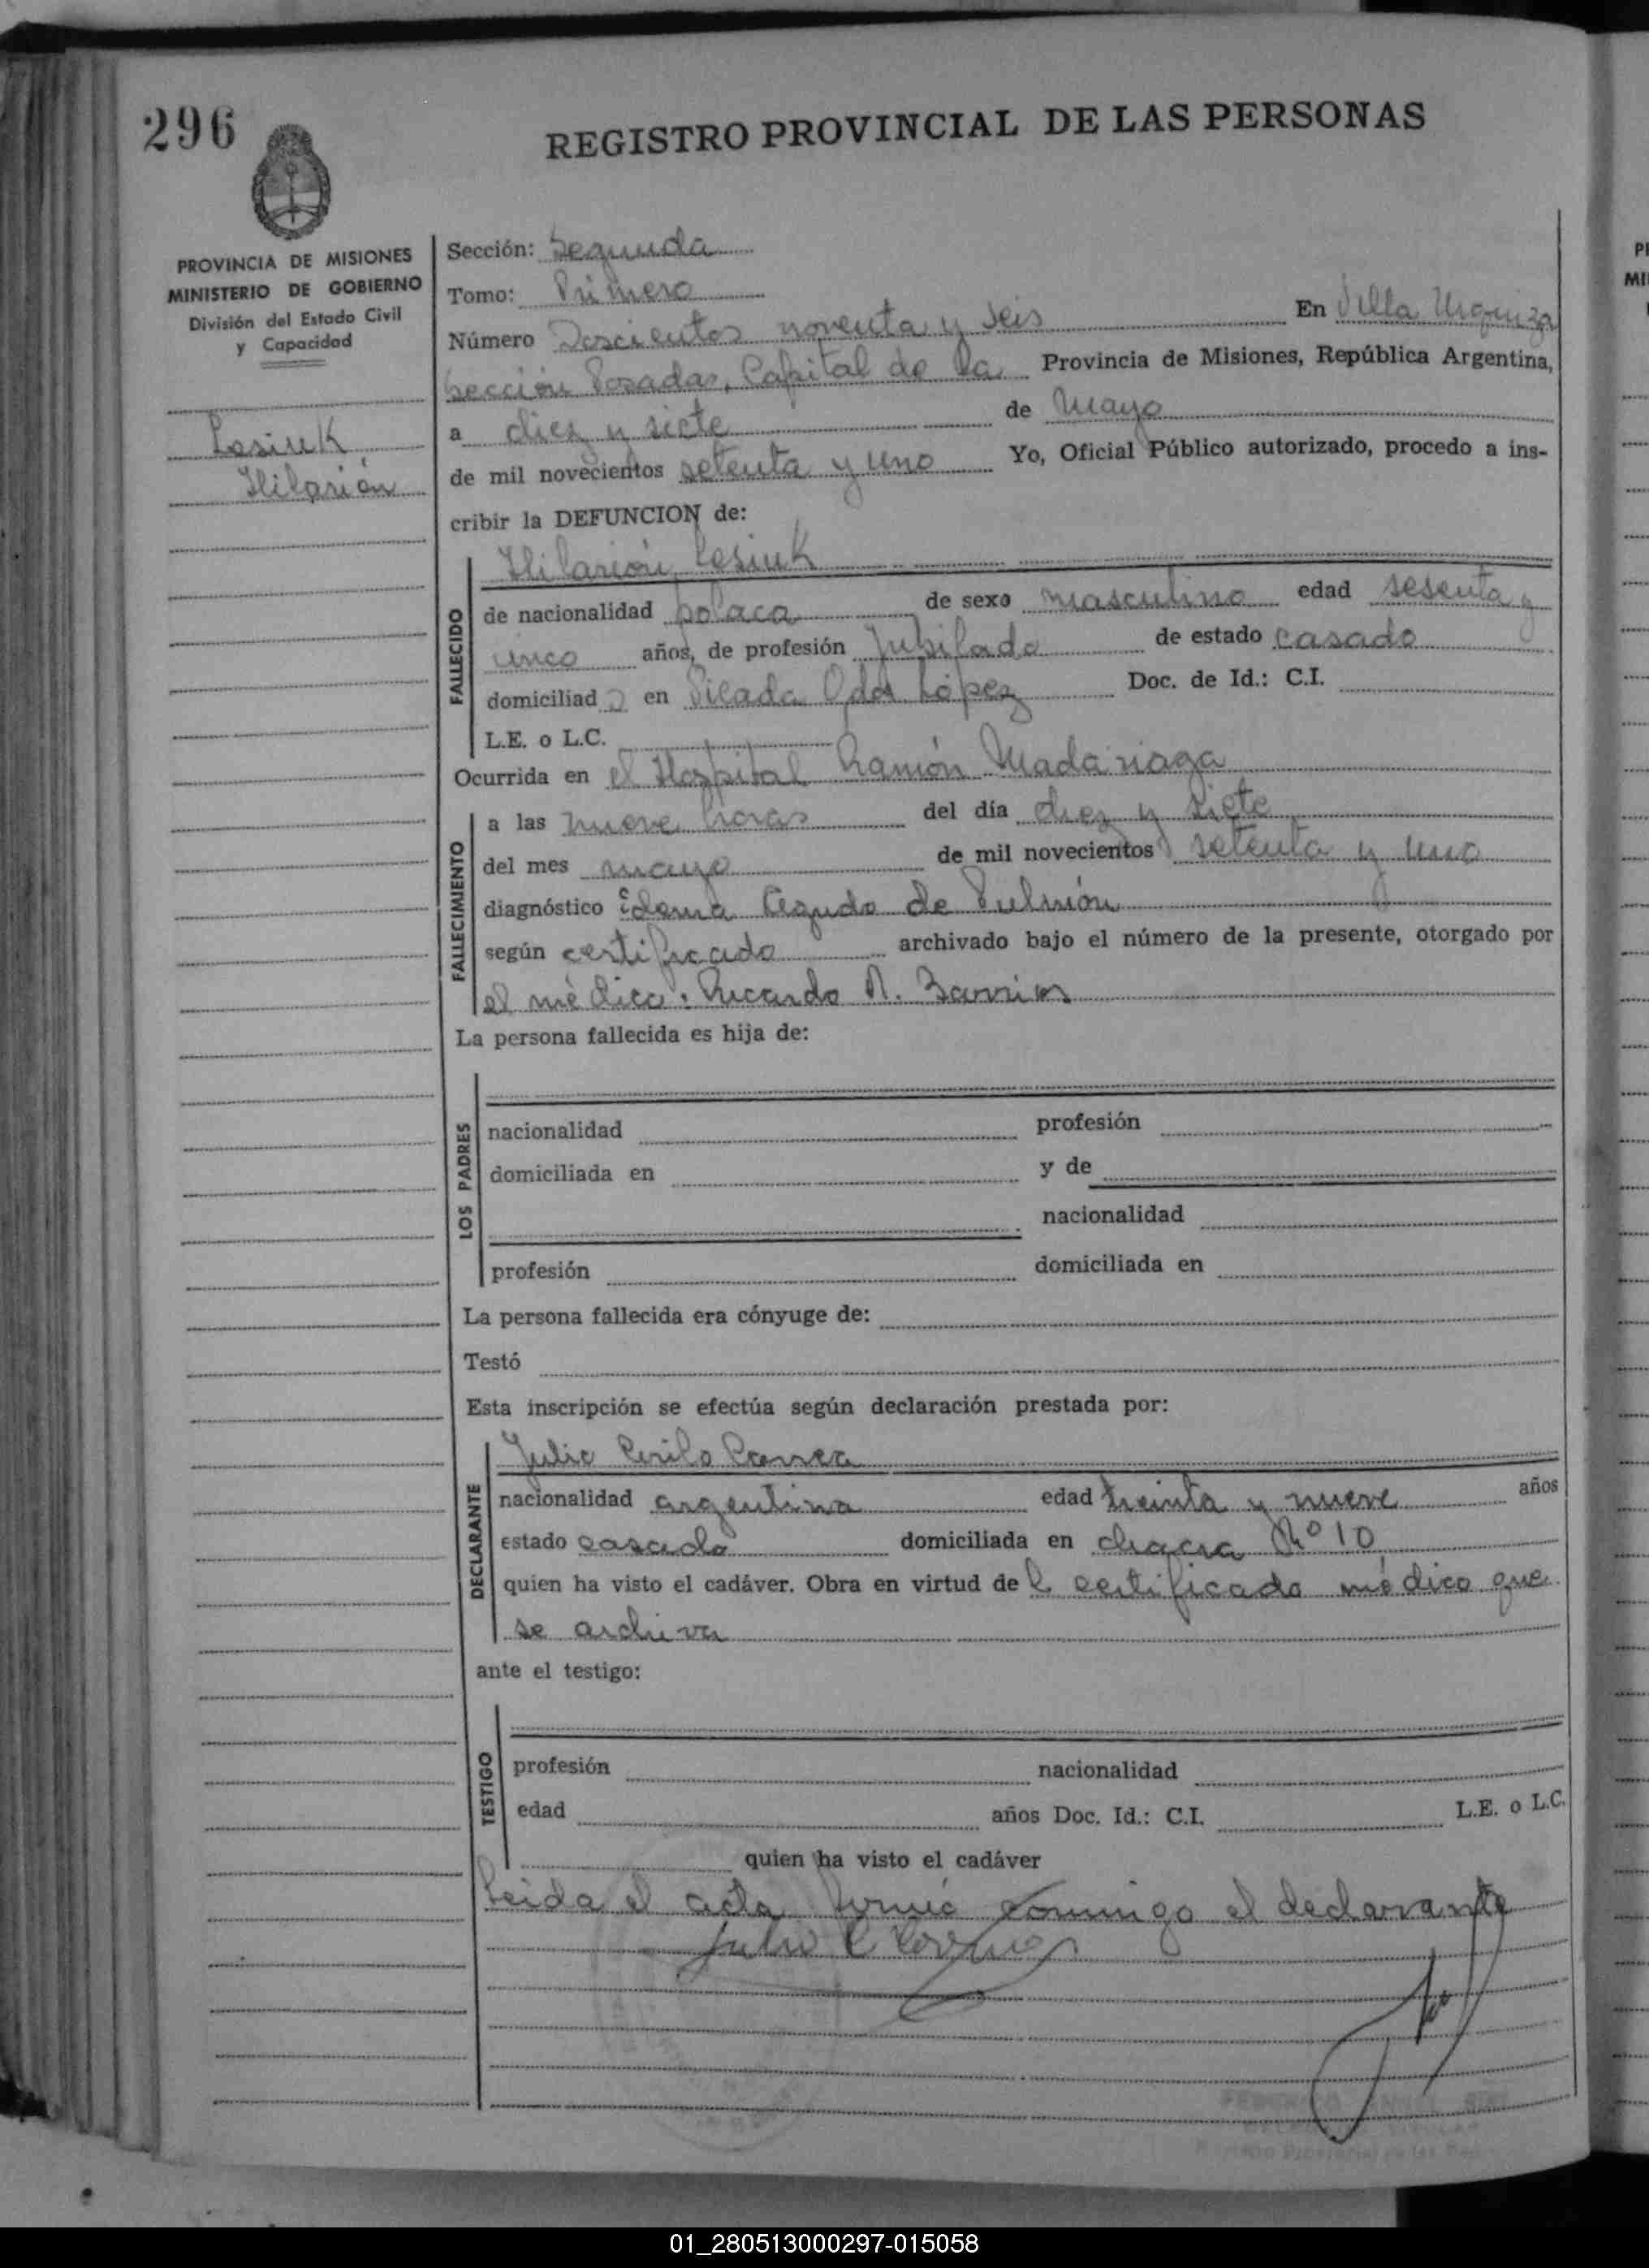 296
REGISTRO PROVINCIAL DE LAS PERSONAS
PROVINCIA DE MISIONES
MINISTERIO DE GOBIERNO
División del Estado Civil
y Capacidad
Lesiuk
Hilarión
Sección: Segunda
Tomo: Primero
Número Doscientos noventa y seis En Villa Urquiza
Sección Posadas, Capital de la Provincia de Misiones, República Argentina,
a diez y siete de Mayo
de mil novecientos setenta y uno Yo, Oficial Público autorizado, procedo a ins-
cribir la DEFUNCION de:
Hilarión Lesiuk
FALLECIDO
de nacionalidad polaca de sexo masculino edad sesenta y
cinco años, de profesión Jubilado de estado casado
domiciliad o en Picada López Doc. de Id.: C.I.
L.E. o L.C.
Ocurrida en el Hospital Ramón Madariaga
FALLECIMIENTO
a las nueve horas del día diez y siete
del mes mayo de mil novecientos setenta y uno
diagnóstico Edema Agudo de Pulmón
según certificado archivado bajo el número de la presente, otorgado por
el médico: Ricardo A. Barrios
La persona fallecida es hija de:
LOS PADRES
nacionalidad profesión
domiciliada en y de
nacionalidad
profesión domiciliada en
La persona fallecida era cónyuge de:
Testó
Esta inscripción se efectúa según declaración prestada por:
DECLARANTE
Julio Cirilo Correa
nacionalidad argentina edad treinta y nueve años
estado casado domiciliada en chacra Nº 10
quien ha visto el cadáver. Obra en virtud de l certificado médico que
se archiva
ante el testigo:
TESTIGO
profesión nacionalidad
edad años Doc. Id.: C.I. L.E. o L.C.
quien ha visto el cadáver
Leida el acta firmó conmigo el declarante
01_280513000297-015058